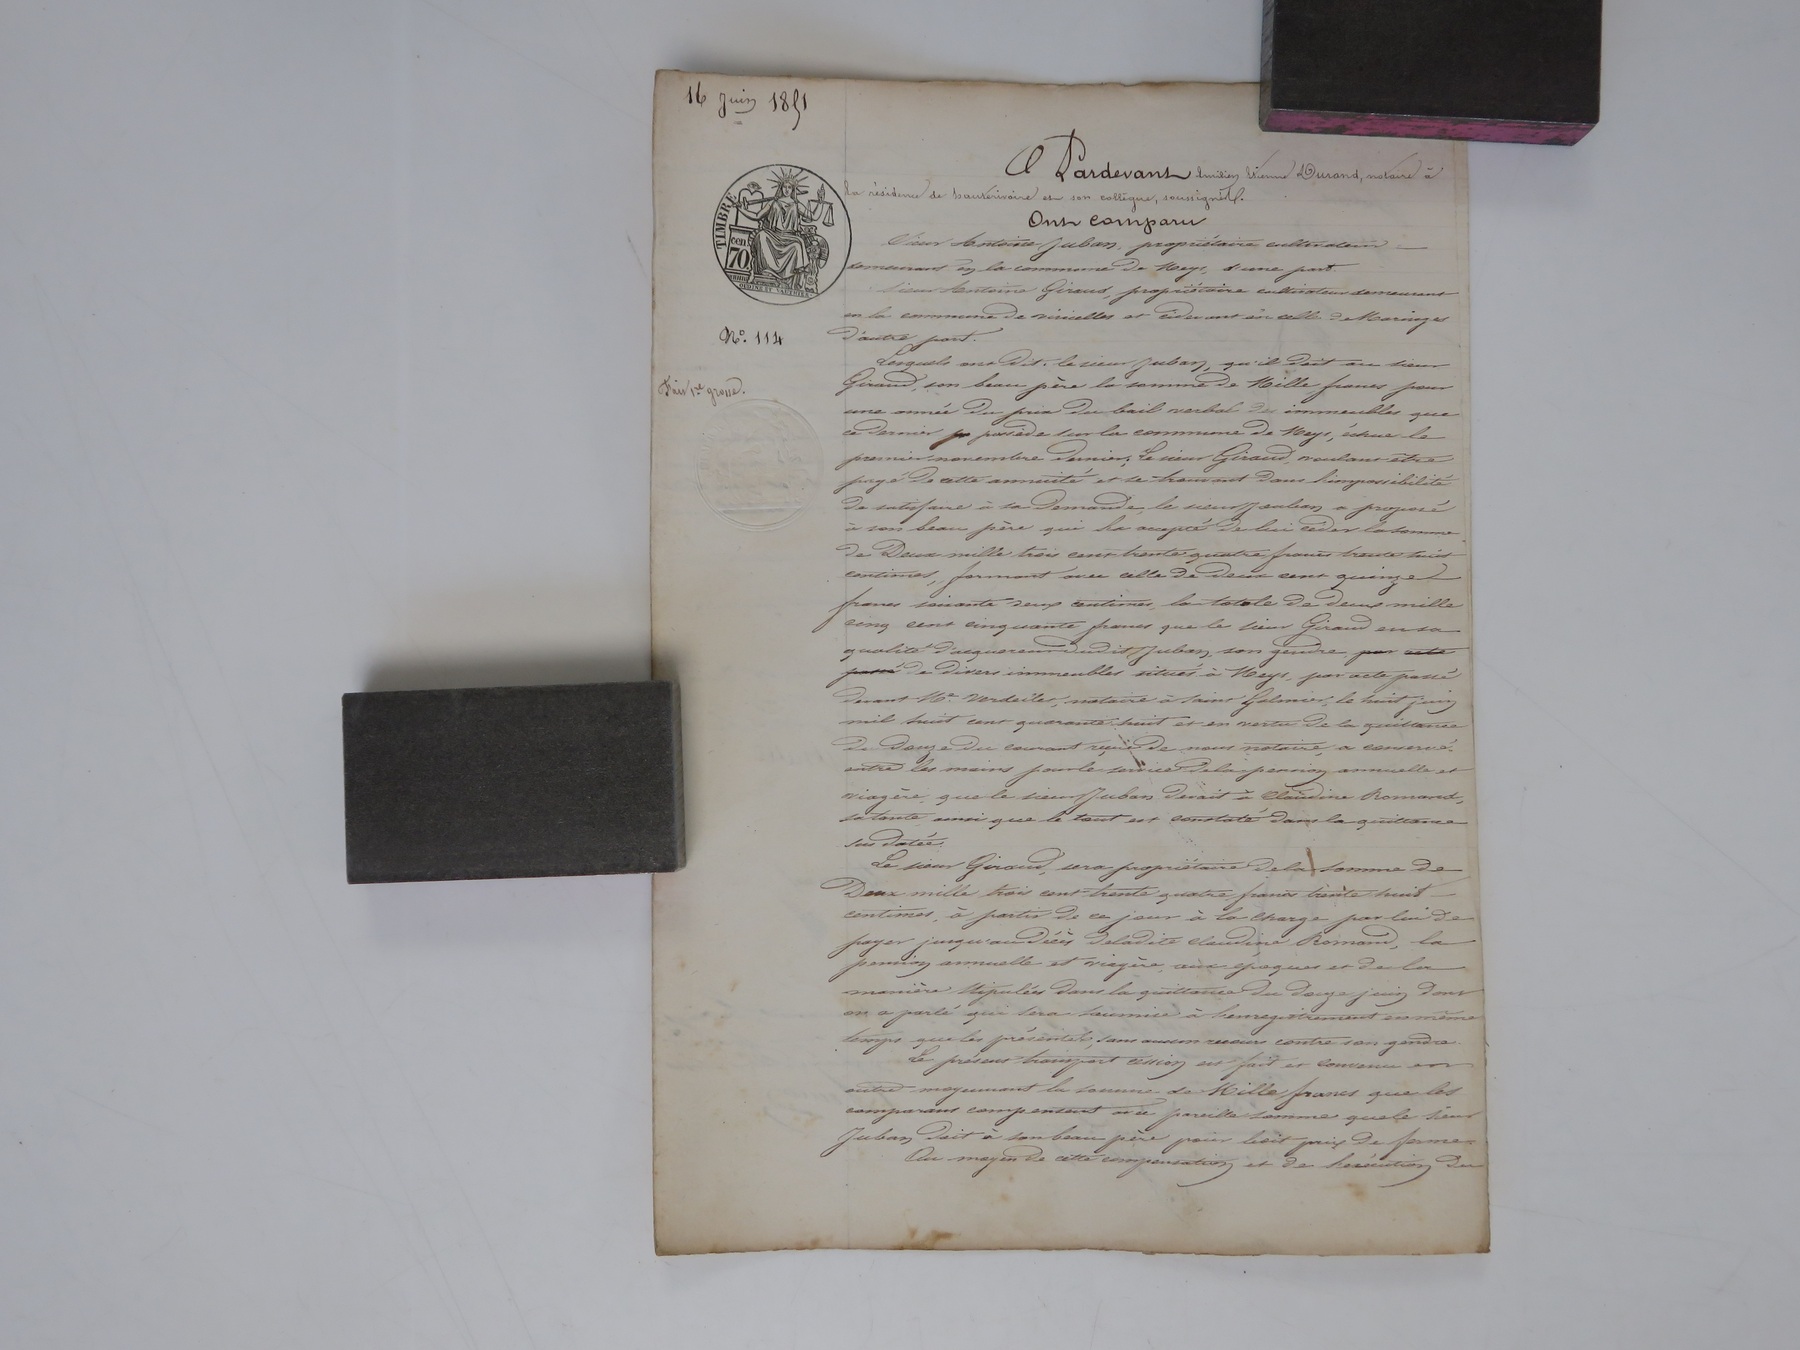 16 Juin 1851
Pardevant Emilien Etienne Durand, notaire à
la résidence de hauterivoire et son collègue, soussignés.
TIMBRE
cen
70
Ont comparu
Sieur Antoine Juban, propriétaire cultivateur
demeurant en la commune de Meys, d'une part.
Sieur Antoine Giraud, propriétaire cultivateur demeurant
en la commune de viricelles et cidevant en celle de Maringes
N°. 114
d'autre part.
Lesquels ont dit. le sieur Juban, qu'il doit au sieur
Fait 1re grosse.
Giraud, son beau père la somme de Mille francs pour
une année du prix du bail verbal des immeubles que
ce dernier possède sur la commune de Meys, échue le
premier novembre dernier; Le sieur Giraud, voulant être
payé de cette annuité et se trouvant dans l'impossibilité
de satisfaire à sa demande, le sieur Juban a proposé
à son beau père qui l'a accepté de lui céder la somme
de Deux mille trois cent trente quatre francs trente huit
centimes, formant avec celle de deux cent quinze
francs soixante deux centimes, la totale de deux mille
cinq cent cinquante francs que le sieur Giraud en sa
qualité d'acquereur dudit Juban, son gendre par acte
passé de divers immeubles situés à Meys, par acte passé
devant Me Verdelet, notaire à Saint Galmier, le huit juin
mil huit cent quarante huit et en vertu de la quittance
du douze du courant reçue de nous notaire, a conservé
entre les mains pour le service de la pension annuelle et
viagère, que le sieur Juban devait à Claudine Romand,
sa tante ainsi que le tout est constaté dans la quittance
sus datée.
Le sieur Giraud, sera propriétaire de la somme de
Deux mille trois cent trente quatre francs trente huit
centimes, à partir de ce jour à la charge par lui de
payer jusqu'au décès de ladite Claudine Romand, la
pension annuelle et viagère, aux époques et de la
manière stipulées dans la quittance du douze juin dont
on a parlé qui sera soumise à l'enregistrement en même
temps que les présentes, sans aucun recours contre son gendre.
Le présent transport cession est fait et convenu en
outre moyennant la somme de Mille francs que les
comparans compensent avec pareille somme que le sieur
Juban doit à son beau père pour ledit prix de ferme.
Au moyen de cette compensation et de l'exécution du